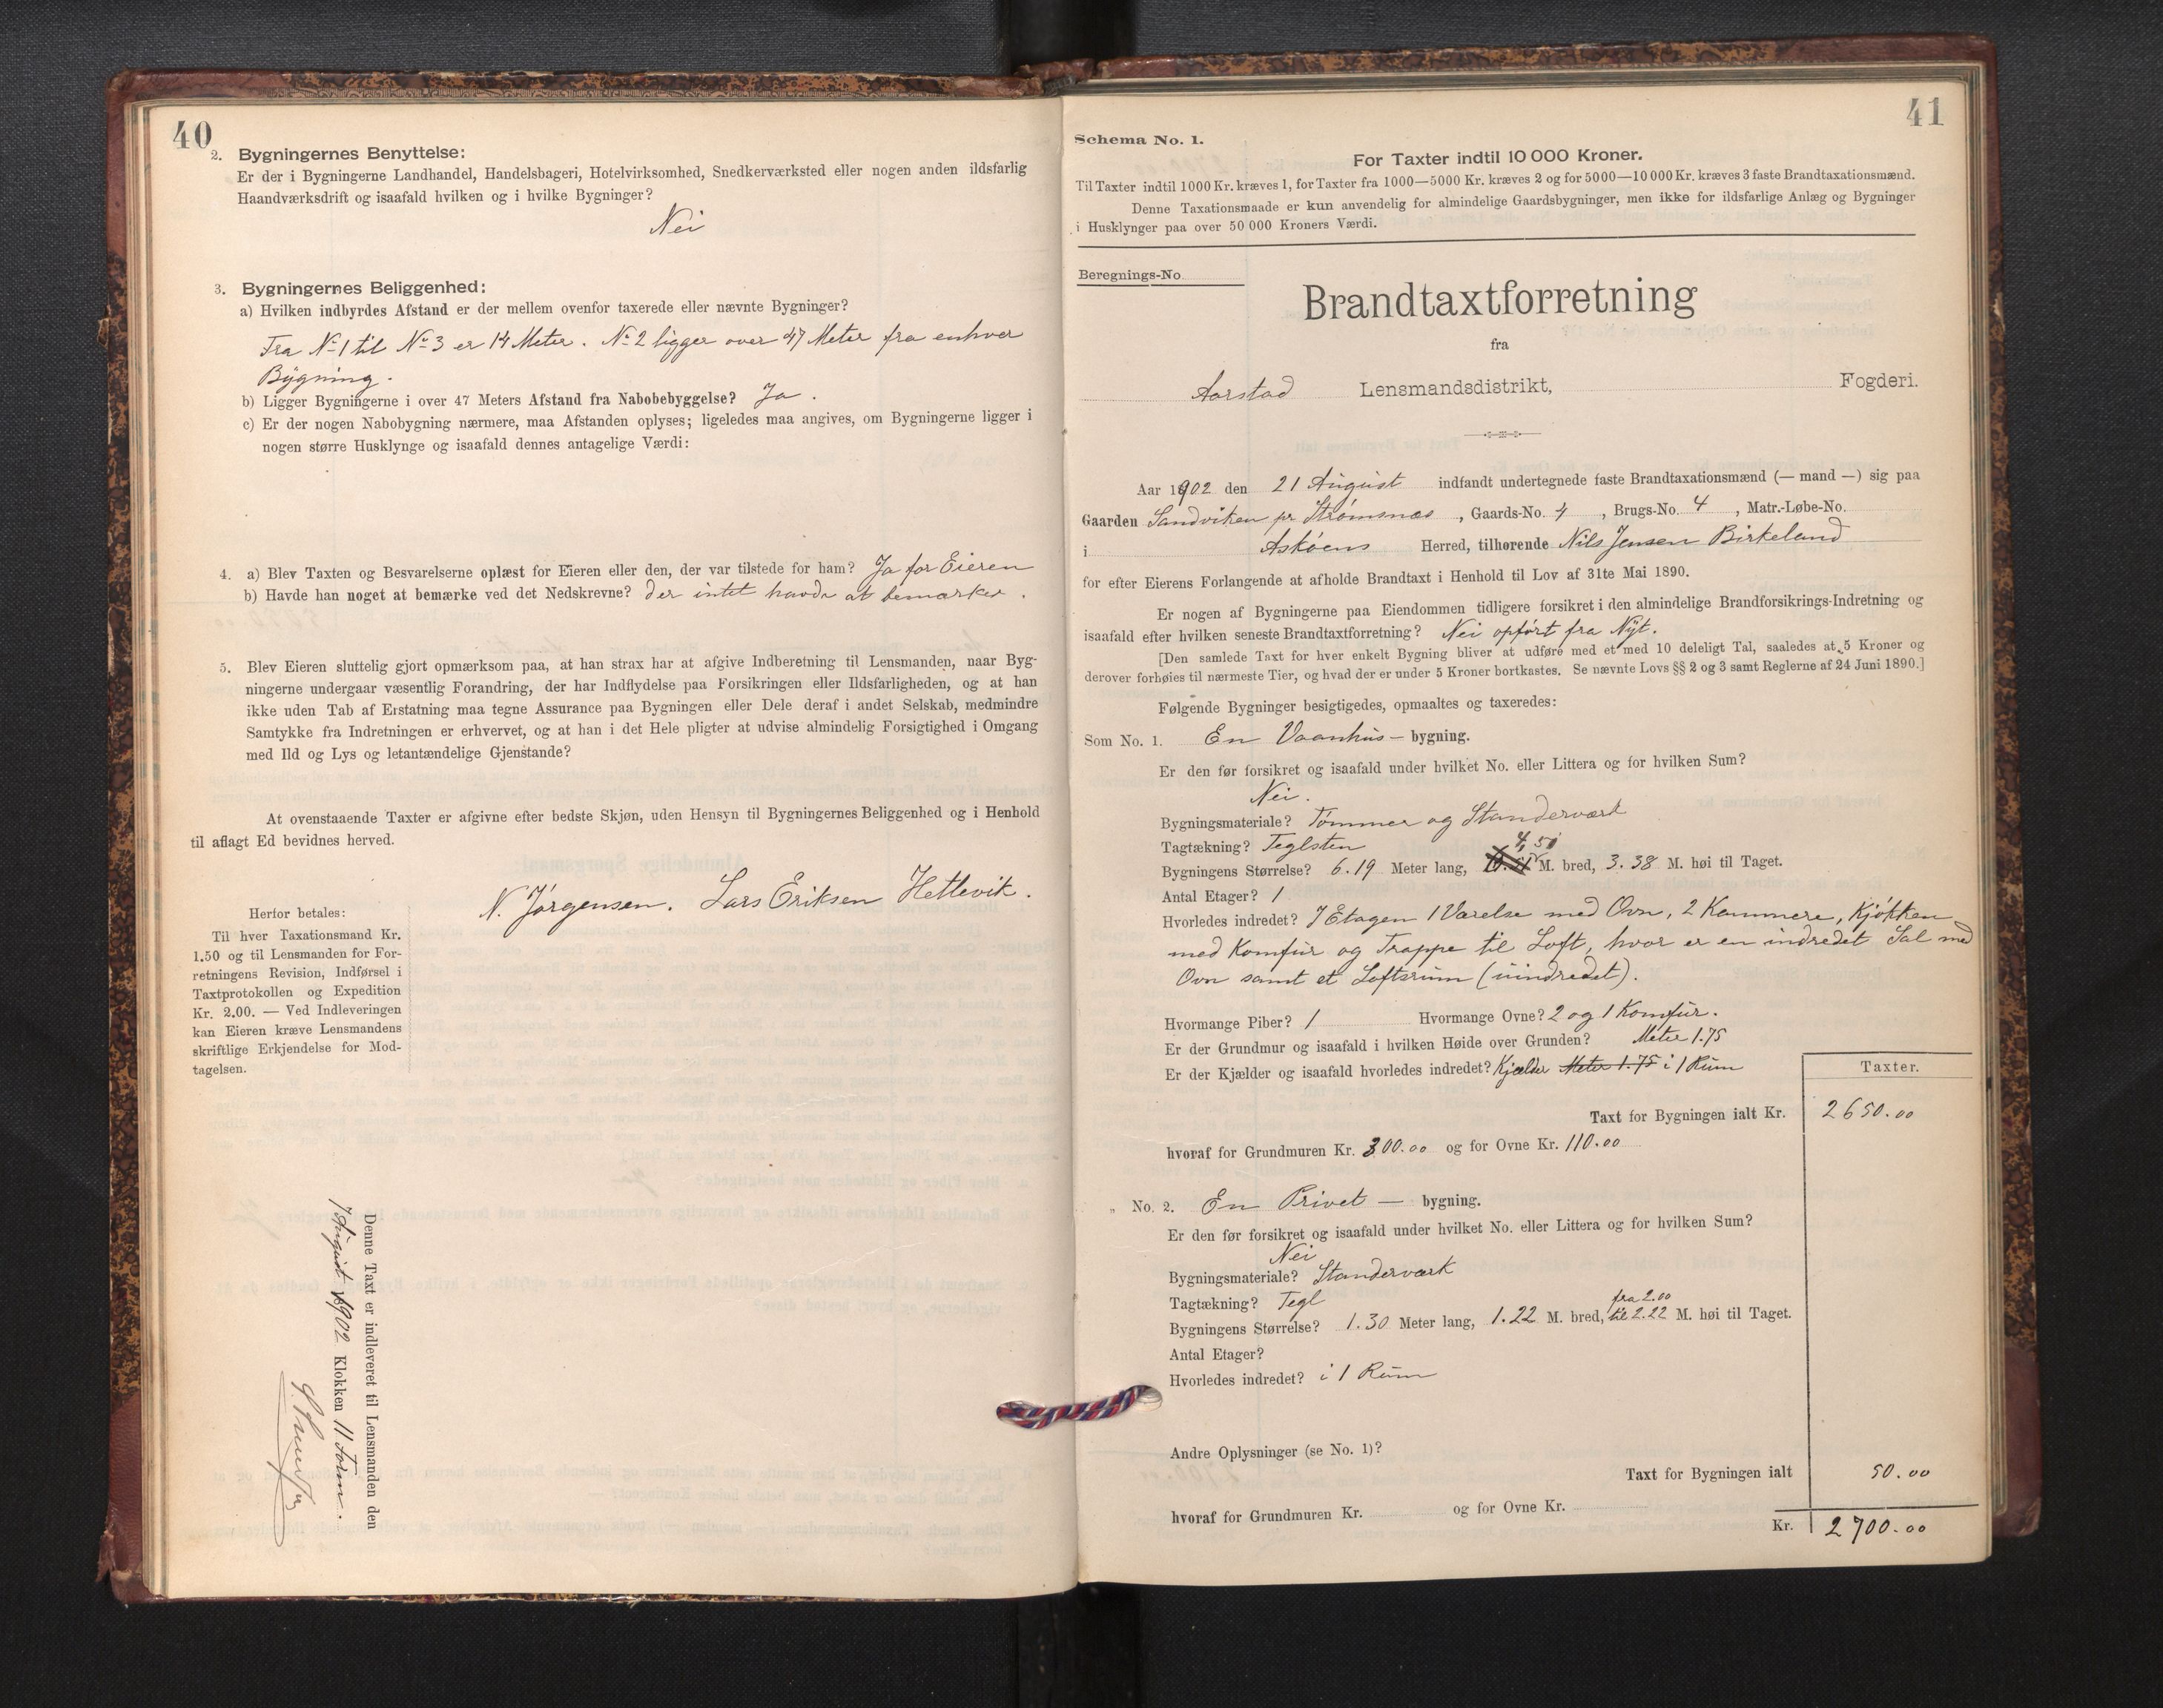 40
2. Bygningernes Benyttelse:
Er der i Bygningerne Landhandel, Handelsbageri, Hotelvirksomhed, Snedkerværksted eller nogen anden ildsfarlig
Haandværksdrift og isaafald hvilken og i hvilke Bygninger?
Nei
3. Bygningernes Beliggenhed:
a) Hvilken indbyrdes Afstand er der mellem ovenfor taxerede eller nævnte Bygninger?
Fra No 1 til No 3 er 14 Meter. No 2 ligger over 47 Meter fra enhver
Bygning.
b) Ligger Bygningerne i over 47 Meters Afstand fra Nabobebyggelse? Ja.
c) Er der nogen Nabobygning nærmere, maa Afstanden oplyses; ligeledes maa angives, om Bygningerne ligger i
nogen større Husklynge og isaafald dennes antagelige Værdi:
4. a) Blev Taxten og Besvarelserne oplæst for Eieren eller den, der var tilstede for ham? Ja for Eieren
b) Havde han noget at bemærke ved det Nedskrevne? der intet havde at bemærke.
5. Blev Eieren sluttelig gjort opmærksom paa, at han strax har at afgive Indberetning til Lensmanden, naar Byg-
ningerne undergaar væsentlig Forandring, der har Indflydelse paa Forsikringen eller Ildsfarligheden, og at han
ikke uden Tab af Erstatning maa tegne Assurance paa Bygningen eller Dele deraf i andet Selskab, medmindre
Samtykke fra Indretningen er erhvervet, og at han i det Hele pligter at udvise almindelig Forsigtighed i Omgang
med Ild og Lys og letantændelige Gjenstande?
At ovenstaaende Taxter er afgivne efter bedste Skjøn, uden Hensyn til Bygningernes Beliggenhed og i Henhold
til aflagt Ed bevidnes herved.
N. Jørgensen. Lars Eriksen Hetlevik.
Herfor betales:
Til hver Taxationsmand Kr.
1.50 og til Lensmanden for For-
retningens Revision, Indførsel i
Taxtprotokollen og Expedition
Kr. 2.00. — Ved Indleveringen
kan Eieren kræve Lensmandens
skriftlige Erkjendelse for Mod-
tagelsen.
Denne Taxt er indleveret til Lensmanden den
7 August 1902 Klokken 11 Form.
41
Schema No. 1.
For Taxter indtil 10 000 Kroner.
Til Taxter indtil 1000 Kr. kræves 1, for Taxter fra 1000—5000 Kr. kræves 2 og for 5000—10 000 Kr. kræves 3 faste Brandtaxationsmænd.
Denne Taxationsmaade er kun anvendelig for almindelige Gaardsbygninger, men ikke for ildsfarlige Anlæg og Bygninger
i Husklynger paa over 50 000 Kroners Værdi.
Beregnings-No
Brandtaxtforretning
fra
Aarstad Lensmandsdistrikt, Fogderi.
Aar 1902 den 21 August indfandt undertegnede faste Brandtaxationsmænd (— mand —) sig paa
Gaarden Sandviken pr Strømsnæs, Gaards-No. 4, Brugs-No. 4, Matr.-Løbe-No.
i Askøens Herred, tilhørende Nils Jensen Birkeland
for efter Eierens Forlangende at afholde Brandtaxt i Henhold til Lov af 31te Mai 1890.
Er nogen af Bygningerne paa Eiendommen tidligere forsikret i den almindelige Brandforsikrings-Indretning og
isaafald efter hvilken seneste Brandtaxtforretning? Nei opført fra Nyt.
[Den samlede Taxt for hver enkelt Bygning bliver at udføre med et med 10 deleligt Tal, saaledes at 5 Kroner og
derover forhøies til nærmeste Tier, og hvad der er under 5 Kroner bortkastes. Se nævnte Lovs §§ 2 og 3 samt Reglerne af 24 Juni 1890.]
Følgende Bygninger besigtigedes, opmaaltes og taxeredes:
Som No. 1. En Vaanhus — bygning.
Er den før forsikret og isaafald under hvilket No. eller Littera og for hvilken Sum?
Nei.
Bygningsmateriale? Tømmer og Standerværk
Tagtækning? Teglsten
Bygningens Størrelse? 6.19 Meter lang, 4,50 M. bred, 3.38 M. høi til Taget.
Antal Etager? 1
Hvorledes indredet? I Etagen 1 Værelse med Ovn, 2 Kammere, Kjøkken
med Komfur og Trappe til Loft, hvor er en indredet Sal med
Ovn samt et Loftsrum (uindredet).
Hvormange Piber? 1 Hvormange Ovne? 2 og 1 Komfur.
Er der Grundmur og isaafald i hvilken Høide over Grunden? Meter 1.75
Er der Kjælder og isaafald hvorledes indredet? Kjælder Meter 1.75 i 1 Rum
Taxter.
Taxt for Bygningen ialt Kr. 2650.00
hvoraf for Grundmuren Kr. 300.00 og for Ovne Kr. 110.00
„ No. 2. En Privet — bygning.
Er den før forsikret og isaafald under hvilket No. eller Littera og for hvilken Sum?
Nei
Bygningsmateriale? Standerværk
Tagtækning? Tegl
Bygningens Størrelse? 1.30 Meter lang, 1.22 M. bred, fra 2.00 til 2.22 M. høi til Taget.
Antal Etager?
Hvorledes indredet? i 1 Rum
Andre Oplysninger (se No. 1)?
Taxt for Bygningen ialt 50.00
hvoraf for Grundmuren Kr. og for Ovne Kr.
Kr. 2700.00